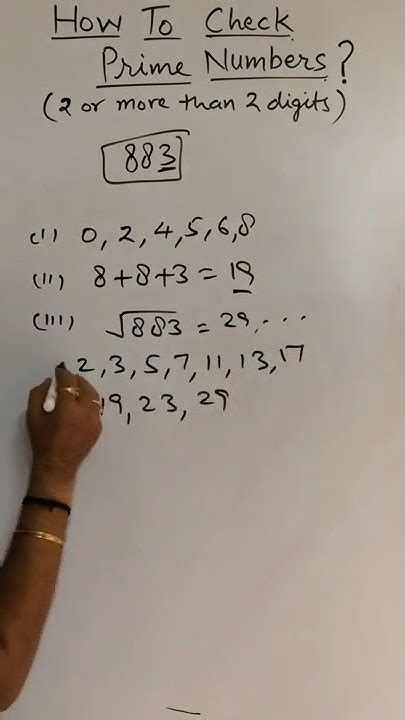 How To Check
Prime Numbers?
(2 or more than 2 digits)
883
(I) 0, 2, 4, 5, 6, 8
(II) 8+8+3 = 19
(III) √883 = 29. ...
2, 3, 5, 7, 11, 13, 17
19, 23, 29